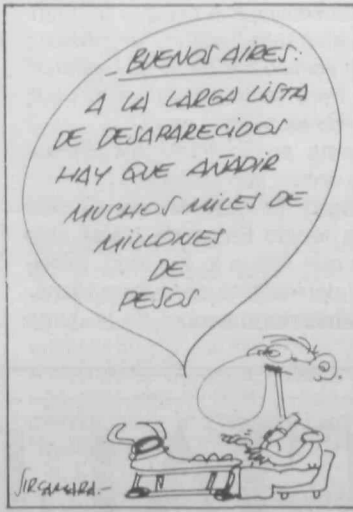 - BUENOS AIRES:
A LA LARGA LISTA
DE DESAPARECIDOS
HAY QUE AÑADIR
MUCHOS MILES DE
MILLONES
DE
PESOS
SIRCAMARA.-